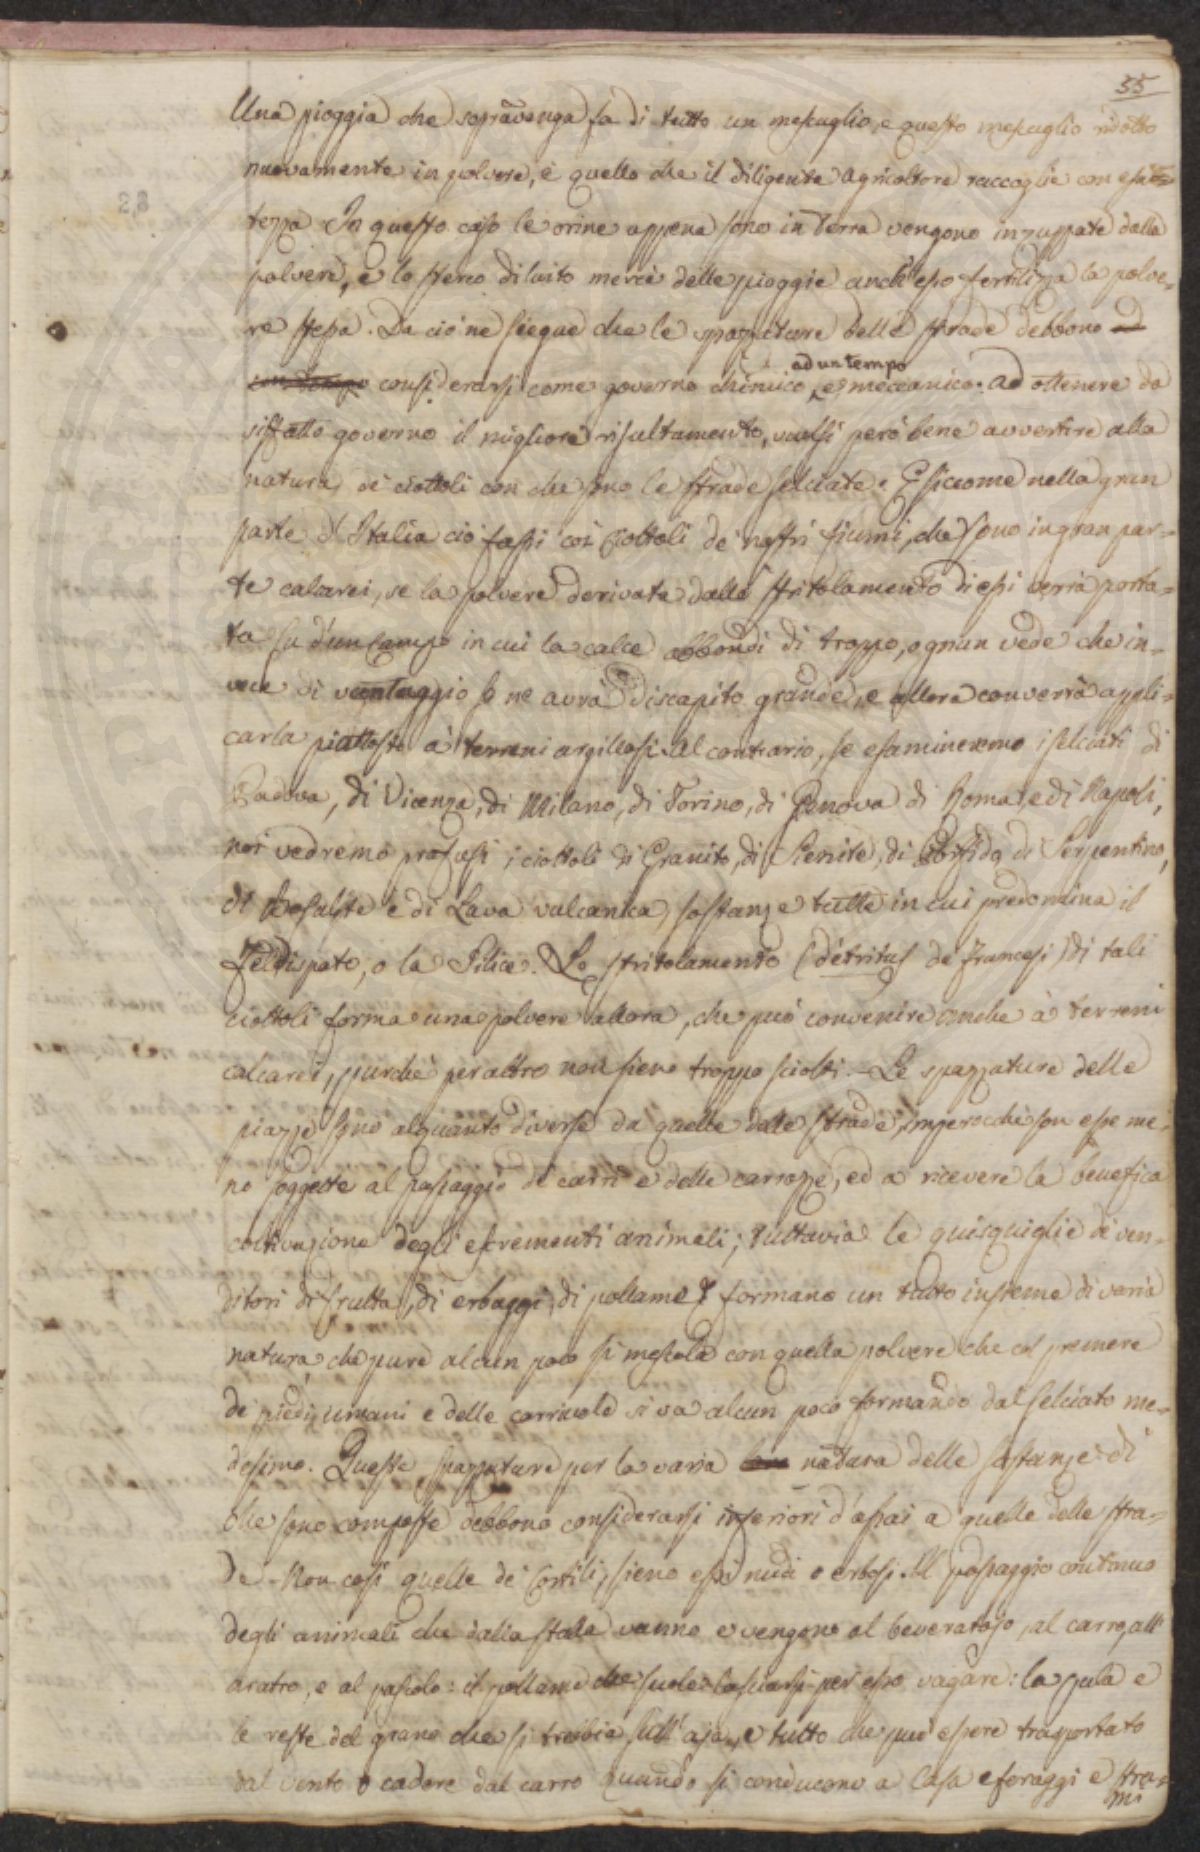 55
Una pioggia che sopravvenga fa di tutto un mescuglio, e questo mescuglio ridotto
nuovamente in polvere, è quello che il diligente Agricoltore raccoglie con esat=
tezza In questo caso le orine appena sono in Terra vengono inzuppate dalla
polvere, e lo sterco diluito mercè delle pioggie anch'esso fertilizza la polve=
re stessa. Da ciò ne siegue che le spazzature delle strade debbono ed
considerarsi come governo chimico, e meccanico. Ad ottenere da
ad un tempo
siffatto governo il migliore risultamento, vuolsi però bene avvertire alla
natura de' ciottoli con che sono le strade selciate. E siccome nella gran
parte d'Italia ciò fassi coi Ciottoli de' nostri fiumi, che sono in gran par=
te calcarei, se la polvere derivata dallo stritolamento di essi verrà porta=
ta su d'un Campo in cui la calce abbondi di troppo, ognun vede che in=
vece di vantaggio se ne avrà discapito grande, e allora converrà appli=
carla piuttosto a' terreni argillosi. Al contrario, se esamineremo i selciati di
Padova, di Vicenza, di Milano, di Torino, di Genova di Roma, e di Napoli,
noi vedremo profusi i ciottoli di Granito, di Sienite, di Porfido, di Serpentino,
di Basalte e di Lava vulcanica, sostanze tutte in cui predomina il
Feldispato, o la Silice. Lo stritolamento (détritus de' francesi) di tali
ciottoli forma una polvere allora, che può convenire anche a' terreni
calcarei, purchè per altro non sieno troppo sciolti. - Le spazzature delle
piazze sono alquanto diverse da quelle delle strade, imperocchè son esse me=
no soggette al passaggio de' carri e delle carrozze, ed a ricevere la benefica
coltivazione degli escrementi animali; tuttavia le quisquiglie de' ven=
ditori di frutta, di erbaggi, di pollame & formano un tutto insieme di varia
natura che pure alcun poco si mescola con quella polvere che col premere
de' piedi umani e delle carriuole si va alcun poco formando dal selciato me=
desimo. Queste spazzature per la varia natura delle sostanze di
che sono composte debbono considerarsi inferiori d'assai a quelle delle stra=
de - Non così quelle de' Cortili, sieno essi nudi o erbosi. Il passaggio continuo
degli animali che dalla stalla vanno e vengono al beveratojo, al carro, all'
aratro, e al pascolo: il pollame che suole lasciarsi per esso vagare: la pula e
le reste del grano che si trebbia sull'aja, e tutto che può essere trasportato
dal vento o cadere dal carro quando si conducono a Casa e foraggi e stra=
mi